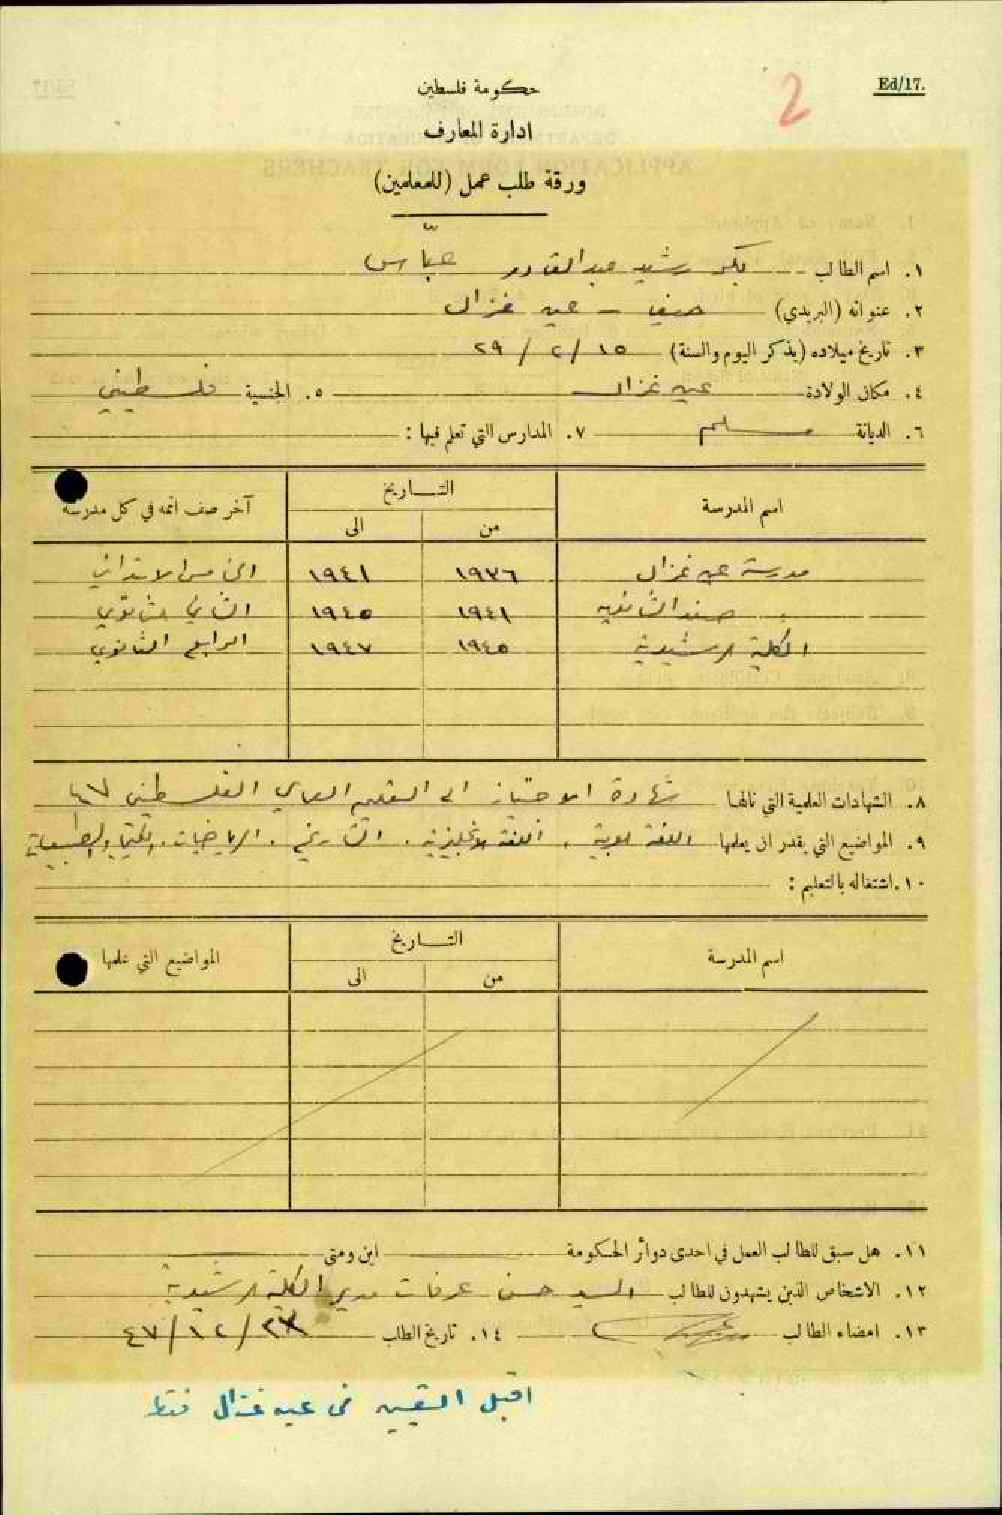 Ed/17.
2
حكومة فلسطين
ادارة المعارف
ورقة طلب عمل (للمعلمين)
١. اسم الطالب بكر رشيد عبد القادر عبّاس
٢. عنوانه (البريدي) حيفا - عين غزال
٣. تاريخ ميلاده (يذكر اليوم والسنة) ١٥/٢/٢٩
٤. مكان الولادة عين غزال ٥. الجنسية فلسطيني
٦. الديانة مسلم ٧. المدارس التي تعلم فيها :
اسم المدرسة التـــاريخ آخر صف اتمه في كل مدرسة
من الى
مدرسة عين غزال ١٩٣٦ ١٩٤١ الخامس الابتدائي
الثانوية ١٩٤١ ١٩٤٥ الثاني الثانوي
الكلية الرشيدية ١٩٤٥ ١٩٤٧ الرابع الثانوي
٨. الشهادات العلمية التي نالها شهادة الاجتياز الى التعليم العالي الفلسطيني ٤٧
٩. المواضيع التي يقدر ان يعلمها اللغة العربية . اللغة الانجليزية . التاريخ . الرياضيات .
١٠. اشتغاله بالتعليم :
اسم المدرسة التـــاريخ المواضيع التي علمها
من الى
١١. هل سبق للطالب العمل في احدى دوائر الحكومة اين ومتى
١٢. الاشخاص الذين يشهدون للطالب السيد حسن عرفات مدير الكلية الرشيدية
١٣. امضاء الطالب ١٤. تاريخ الطلب ٢٣/١٢/٤٧
اقبل التعيين في عين غزال فقط